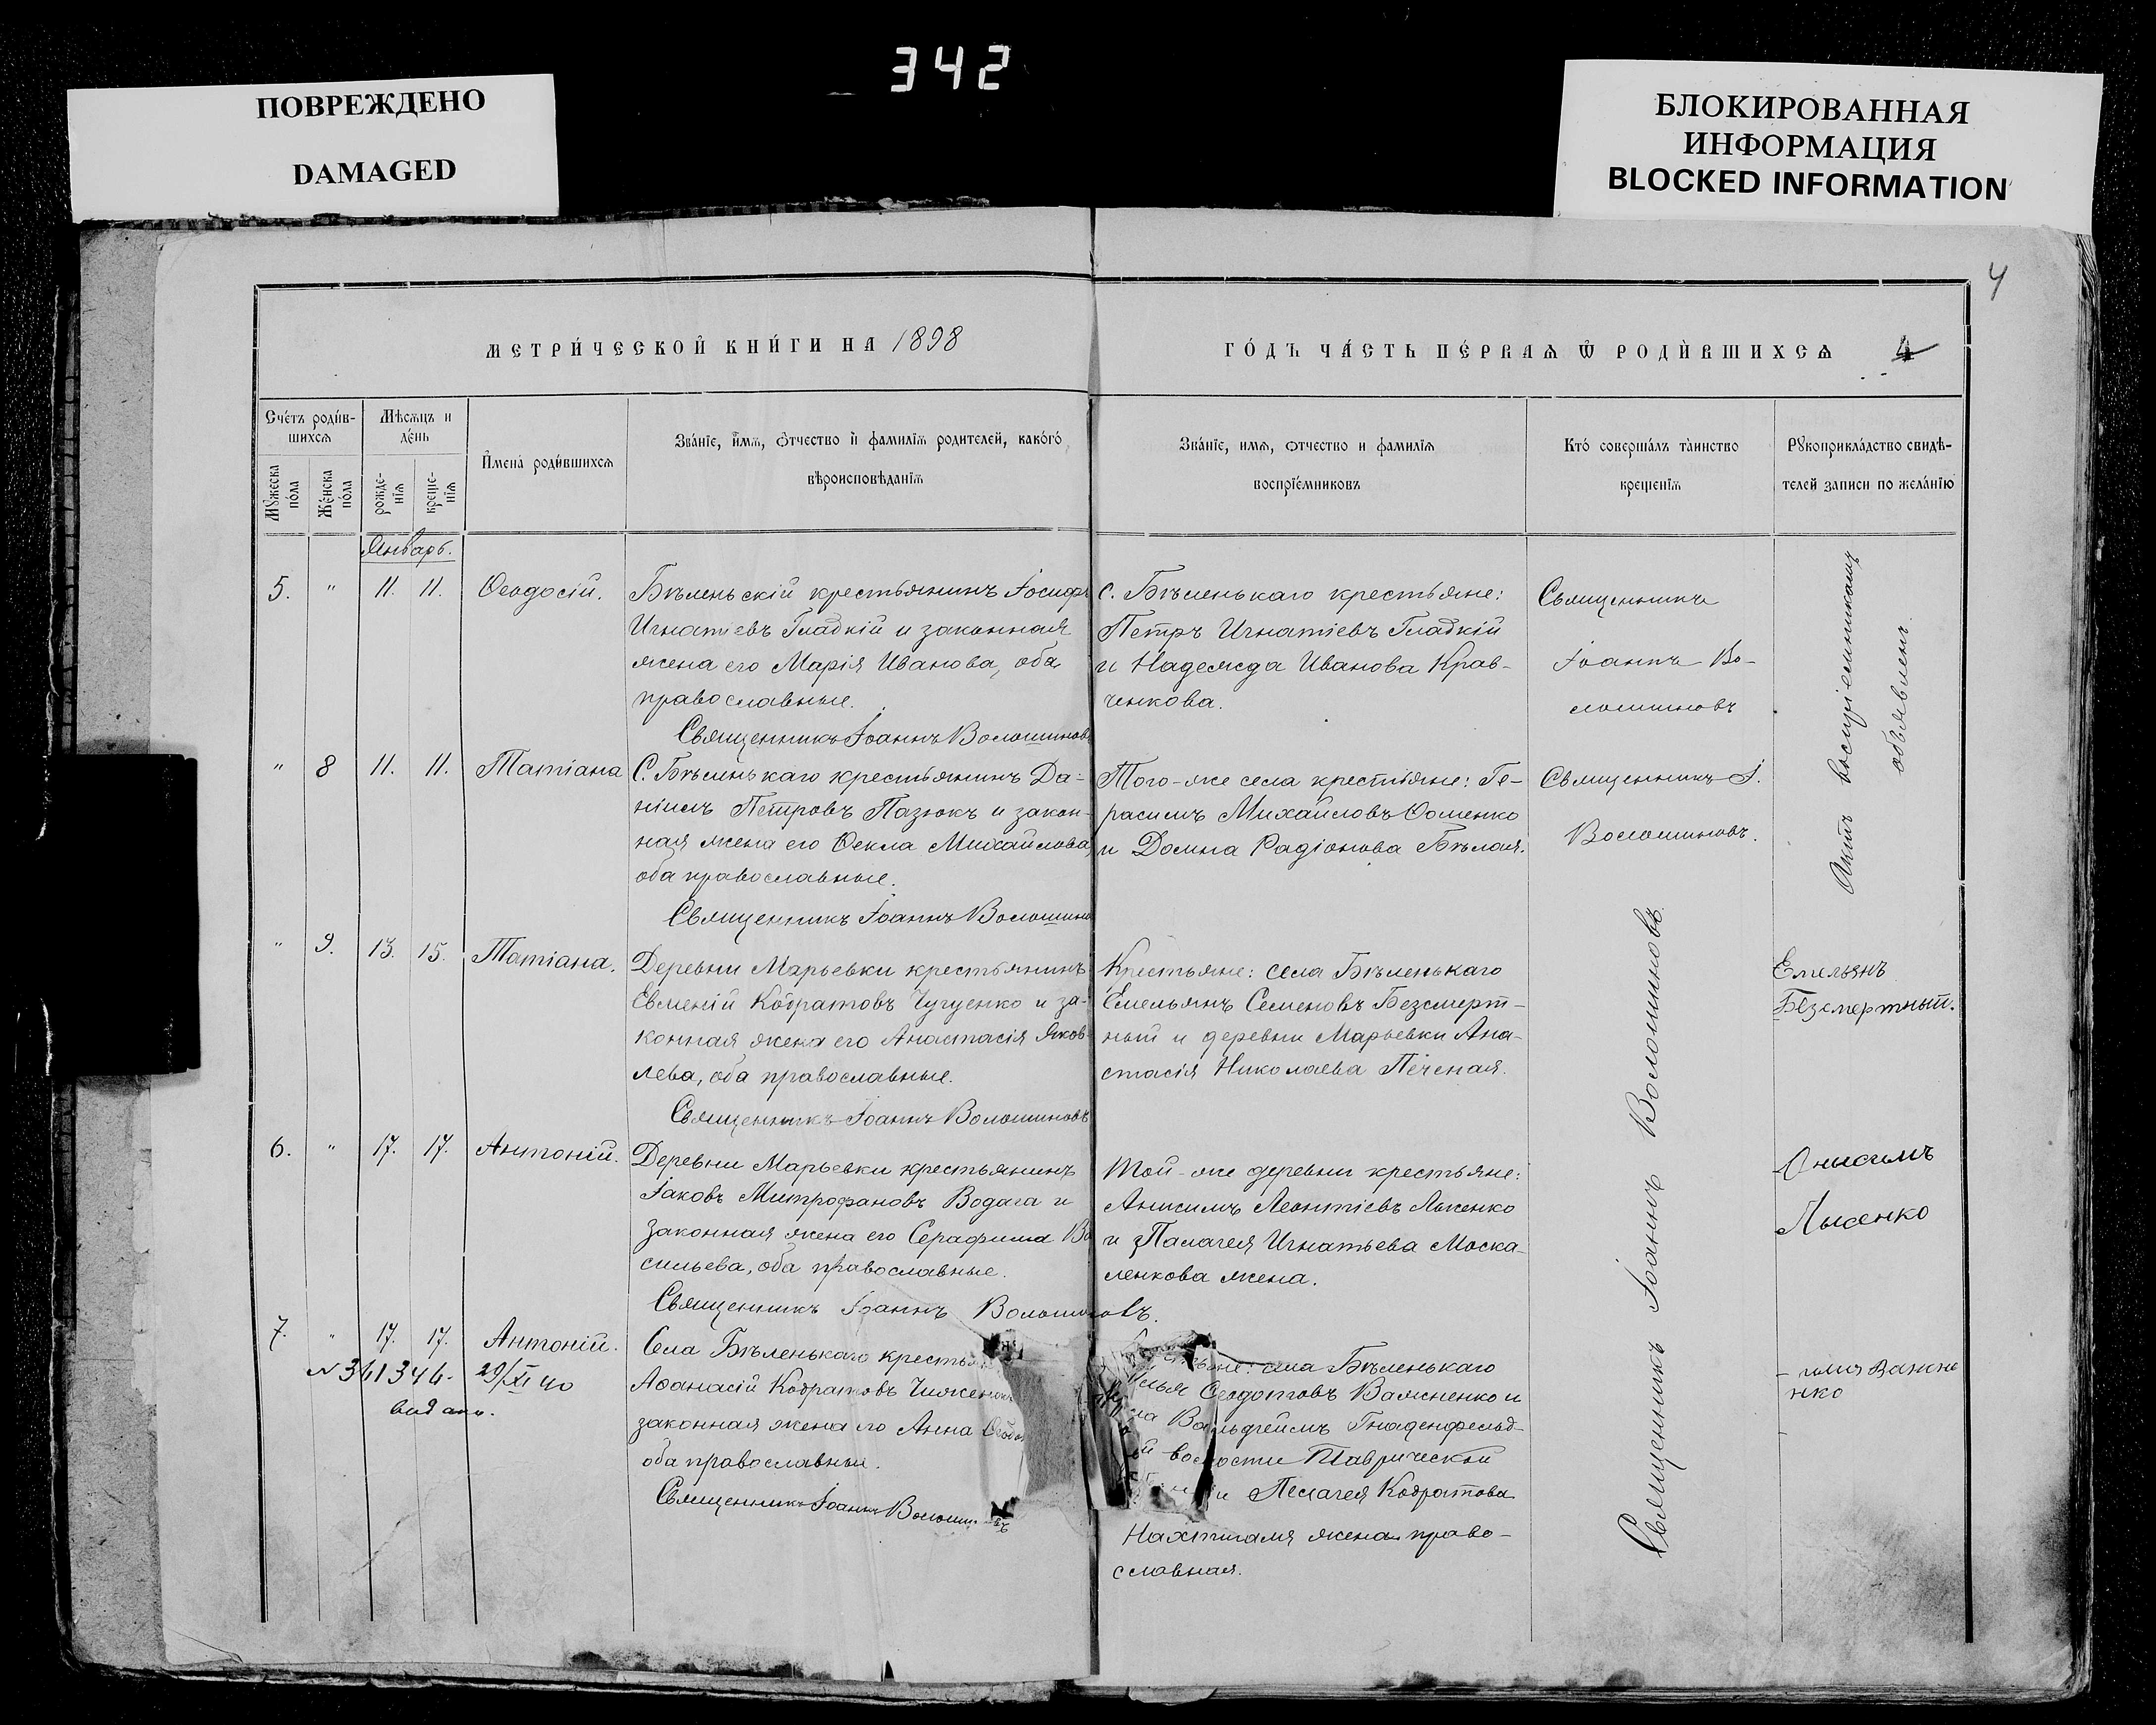 342
ПОВРЕЖДЕНО
DAMAGED
БЛОКИРОВАННАЯ
ИНФОРМАЦИЯ
BLOCKED INFORMATION
4
МЕТРИ́ЧЕСКОЙ КНИ́ГИ НА 1898
ГО́ДЪ ЧА́СТЬ ПЕ́РВАѦ Ѿ РОДИ́ВШИХСѦ 4
Сче́тъ роди́в-
шихсѧ
Мꙋ́жеска по́ла
Же́нска по́ла
Мѣ́сѧцъ и
де́нь
рожде-
нїѧ
креще-
нїѧ
И҆мена̀ роди́вшихсѧ
Зва́нїе, и҆́мѧ, ѻ҆́тчество и҆ фамилїѧ родителей, како́гѡ
вѣроисповѣ́данїѧ
Зва́нїе, имѧ, ѻтчество и фамилїѧ
воспрїе́мниковъ
Кто́ соверша́лъ та̀инство
креще́нїѧ
Рꙋкоприкла́дство свидѣ́-
телей записи по жела́нїю
Январь.
5. " 11. 11. Ѳеодосій.
Бѣленьскій крестьянинъ Іосифъ
Игнатіевъ Гладкій и законная
жена его Марія Иванова, оба
православные.
Священникъ Іоаннъ Волошиновъ
с. Бѣленькаго крестьяне:
Петръ Игнатіевъ Гладкій
и Надежда Иванова Крав-
ченкова.
Священникъ
Іоаннъ Во-
лошиновъ
Актъ воспріемникамъ
объявленъ.
" 8 11. 11. Татіана
С. Бѣленькаго крестьянинъ Да-
ніилъ Петровъ Пазюкъ и закон-
ная жена его Ѳекла Михайлова,
оба православные.
Священникъ Іоаннъ Волошино
Того-же села крестьяне: Ге-
расимъ Михайловъ Ѳоменко
и Домна Радіонова Бѣлая.
Священникъ І.
Волошиновъ.
" 9. 13. 15. Татіана.
Деревни Марьевки крестьянинъ
Евменій Кодратовъ Чугуенко и за-
конная жена его Анастасія Яков-
лева, оба православные.
Священникъ Іоаннъ Волошиновъ
Крестьяне: села Бѣленькаго
Емельянъ Семеновъ Безсмерт-
ный и деревни Марьевки Ана-
стасія Николаева Печеная.
Священникъ Іоаннъ Волошиновъ.
Емельянъ
Безсмертный.
6. " 17. 17. Антоній.
Деревни Марьевки крестьянинъ
Іаковъ Митрофановъ Водага и
законная жена его Серафима Ва
сильева, оба православные.
Священникъ Іоаннъ Волошиновъ.
Той-же деревни крестьяне:
Анисимъ Леонтіевъ Лысенко
и Палагея Игнатьева Моска-
ленкова жена.
Онисимъ
Лысенко
7. " 17. 17. Антоній.
29/XI 40
Села Бѣленькаго крестья
Аѳанасій Кодратовъ
законная жена его Анна
оба православные.
Священникъ Іоаннъ
села Бѣленькаго
Ѳедотовъ Важненко и
Вальдгеймъ Гнаденфельд-
волости Таврической
Пелагея Кодратова
жена право-
славная.
нко